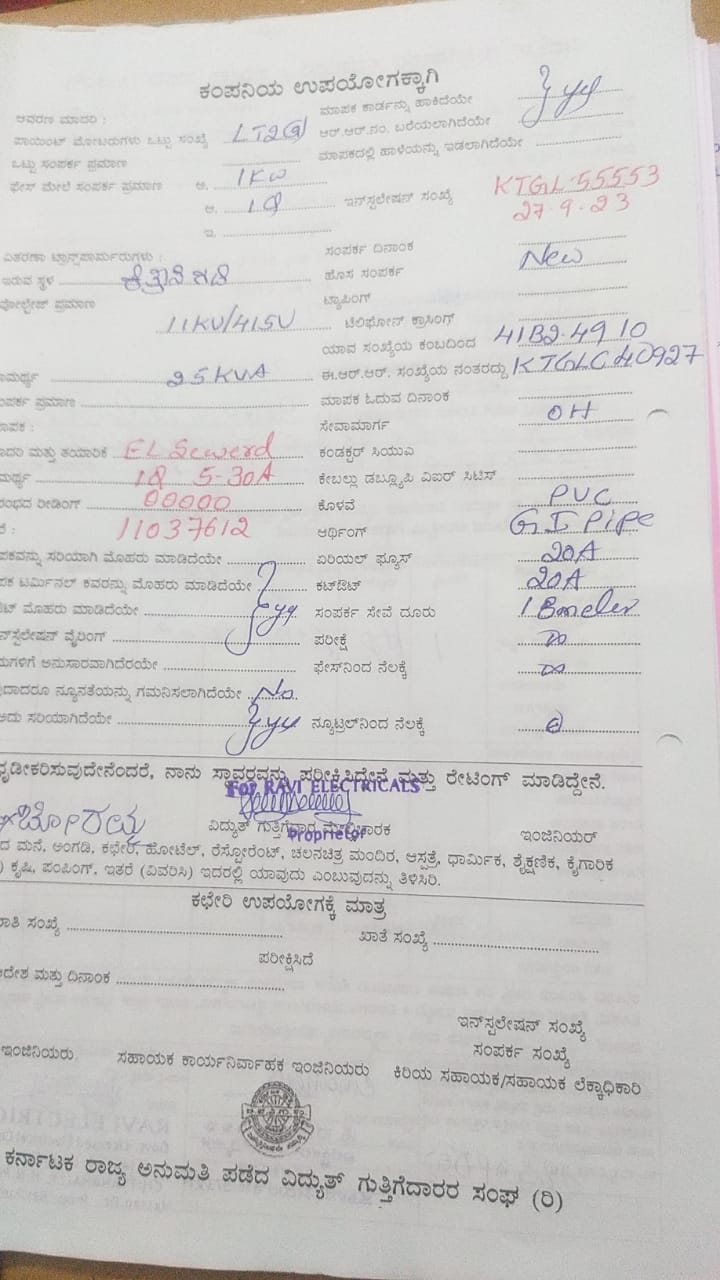 ಕಂಪನಿಯ ಉಪಯೋಗಕ್ಕಾಗಿ
ಆವರಣ ಮಾದರಿ :
ಪಾಯಿಂಟ್ ಮೋಟರುಗಳು ಒಟ್ಟು ಸಂಖ್ಯೆ LT2(a)
ಒಟ್ಟು ಸಂಪರ್ಕ ಪ್ರಮಾಣ
ಫೇಸ್ ಮೇಲೆ ಸಂಪರ್ಕ ಪ್ರಮಾಣ ಅ. 1KW
ಆ. 1Φ
ಇ.
ವಿತರಣಾ ಟ್ರಾನ್ಸ್‌ಫಾರ್ಮರುಗಳು :
ಇರುವ ಸ್ಥಳ
ವೋಲ್ಟೇಜ್ ಪ್ರಮಾಣ
11KV/415V
ಸಾಮರ್ಥ್ಯ 25KVA
ಸಂಪರ್ಕ ಪ್ರಮಾಣ
ಮಾಪಕ :
ಮಾದರಿ ಮತ್ತು ತಯಾರಿಕೆ EL Sewerd
ಸಾಮರ್ಥ್ಯ 1Φ 5-30A
ಪ್ರಾರಂಭದ ರೀಡಿಂಗ್ 00000
11037612
ಮಾಪಕವನ್ನು ಸರಿಯಾಗಿ ಮೊಹರು ಮಾಡಿದೆಯೇ
ಮಾಪಕ ಟರ್ಮಿನಲ್ ಕವರನ್ನು ಮೊಹರು ಮಾಡಿದೆಯೇ
ಮೊಹರು ಮಾಡಿದೆಯೇ
ಇನ್‌ಸ್ಟಲೇಷನ್ ವೈರಿಂಗ್
ಅನುಸಾರವಾಗಿದೆರಯೇ
ನ್ಯೂನತೆಯನ್ನು ಗಮನಿಸಲಾಗಿದೆಯೇ No
ಅದು ಸರಿಯಾಗಿದೆಯೇ
ಮಾಪಕ ಕಾರ್ಡನ್ನು ಹಾಕಿದೆಯೇ
ಆರ್.ಆರ್.ನಂ. ಬರೆಯಲಾಗಿದೆಯೇ
ಮಾಪಕದಲ್ಲಿ ಹಾಳೆಯನ್ನು ಇಡಲಾಗಿದೆಯೇ
ಇನ್‌ಸ್ಟಲೇಷನ್ ಸಂಖ್ಯೆ KTGL55553
27.9.23
ಸಂಪರ್ಕ ದಿನಾಂಕ
ಹೊಸ ಸಂಪರ್ಕ New
ಟ್ಯಾಪಿಂಗ್
ಟೆಲಿಫೋನ್ ಕ್ರಾಸಿಂಗ್
ಯಾವ ಸಂಖ್ಯೆಯ ಕಂಬದಿಂದ 41B2.4910
ಈ.ಆರ್.ಆರ್. ಸಂಖ್ಯೆಯ ನಂತರದ್ದು KTGLG40927
ಮಾಪಕ ಓದುವ ದಿನಾಂಕ
ಸೇವಾಮಾರ್ಗ OH
ಕಂಡಕ್ಟರ್ ಸಿಯುವಿ
ಕೇಬಲ್ಲು ಡಬ್ಲ್ಯೂಪಿ ವಿಐರ್ ಸಿಟಿಸ್
ಕೊಳವೆ PVC
ಆರ್ಥಿಂಗ್ GI Pipe
ಏರಿಯಲ್ ಫ್ಯೂಸ್ 20A
ಕಟ್‌ಔಟ್ 20A
ಸಂಪರ್ಕ ಸೇವೆ ದೂರು 18meter
ಪರೀಕ್ಷೆ
ಫೇಸ್‌ನಿಂದ ನೆಲಕ್ಕೆ
ನ್ಯೂಟ್ರಲ್‌ನಿಂದ ನೆಲಕ್ಕೆ
ಧೃಡೀಕರಿಸುವುದೇನೆಂದರೆ, ನಾನು ಸ್ಥಾವರವನ್ನು ಪರೀಕ್ಷಿಸಿದ್ದೇನೆ ಮತ್ತು ರೇಟಿಂಗ್ ಮಾಡಿದ್ದೇನೆ.
For RAVI ELECTRICALS
ವಿದ್ಯುತ್ ಗುತ್ತಿಗೆದಾರ
Proprietor
ಇಂಜಿನಿಯರ್
ಮನೆ, ಅಂಗಡಿ, ಕಛೇರಿ, ಹೋಟೆಲ್, ರೆಸ್ಟೋರೆಂಟ್, ಚಲನಚಿತ್ರ ಮಂದಿರ, ಆಸ್ಪತ್ರೆ, ಧಾರ್ಮಿಕ, ಶೈಕ್ಷಣಿಕ, ಕೈಗಾರಿಕ
) ಕೃಷಿ, ಪಂಪಿಂಗ್, ಇತರೆ (ವಿವರಿಸಿ) ಇದರಲ್ಲಿ ಯಾವುದು ಎಂಬುವುದನ್ನು ತಿಳಿಸಿರಿ.
ಕಛೇರಿ ಉಪಯೋಗಕ್ಕೆ ಮಾತ್ರ
ಸಂಖ್ಯೆ
ಖಾತೆ ಸಂಖ್ಯೆ
ಪರೀಕ್ಷಿಸಿದೆ
ಆದೇಶ ಮತ್ತು ದಿನಾಂಕ
ಇನ್‌ಸ್ಪಲೇಷನ್ ಸಂಖ್ಯೆ
ಸಂಪರ್ಕ ಸಂಖ್ಯೆ
ಇಂಜಿನಿಯರು ಸಹಾಯಕ ಕಾರ್ಯನಿರ್ವಾಹಕ ಇಂಜಿನಿಯರು ಕಿರಿಯ ಸಹಾಯಕ/ಸಹಾಯಕ ಲೆಕ್ಕಾಧಿಕಾರಿ
ಕರ್ನಾಟಕ ರಾಜ್ಯ ಅನುಮತಿ ಪಡೆದ ವಿದ್ಯುತ್ ಗುತ್ತಿಗೆದಾರರ ಸಂಘ (ರಿ)